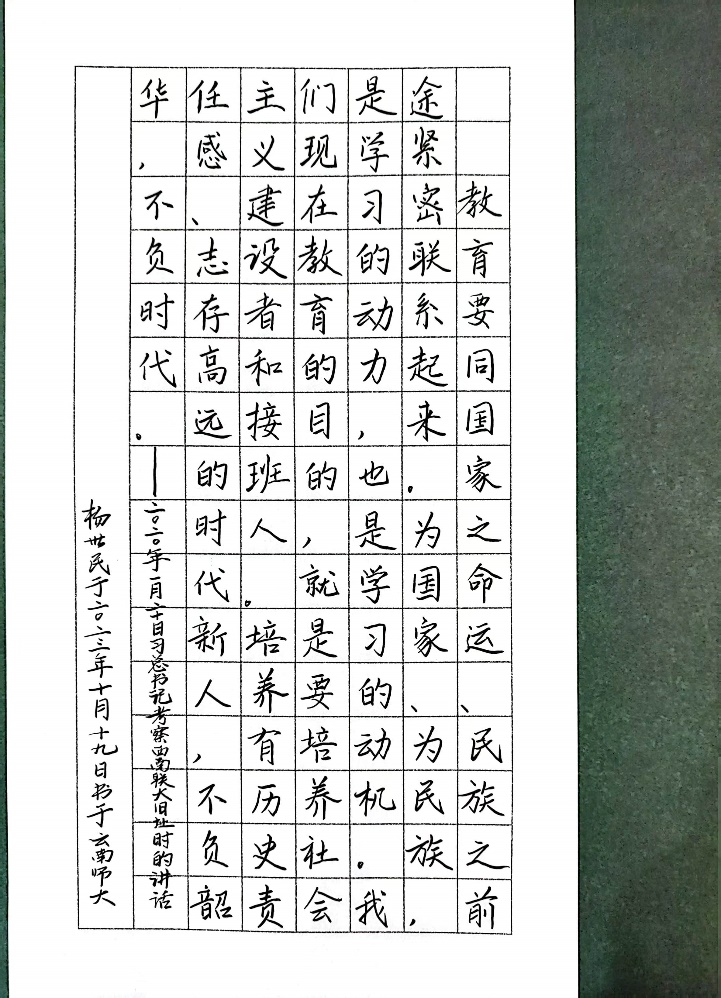 教育要同国家之命运、民族之前
途紧密联系起来。为国家、为民族，
是学习的动力，也是学习的动机。我
们现在教育的目的，就是要培养社会
主义建设者和接班人。培养有历史责
任感、志存高远的时代新人，不负韶
华，不负时代。—二〇二〇年一月二十日习总书记考察西南联大旧址时的讲话
杨世民于二〇二三年十月十九日书于云南师大